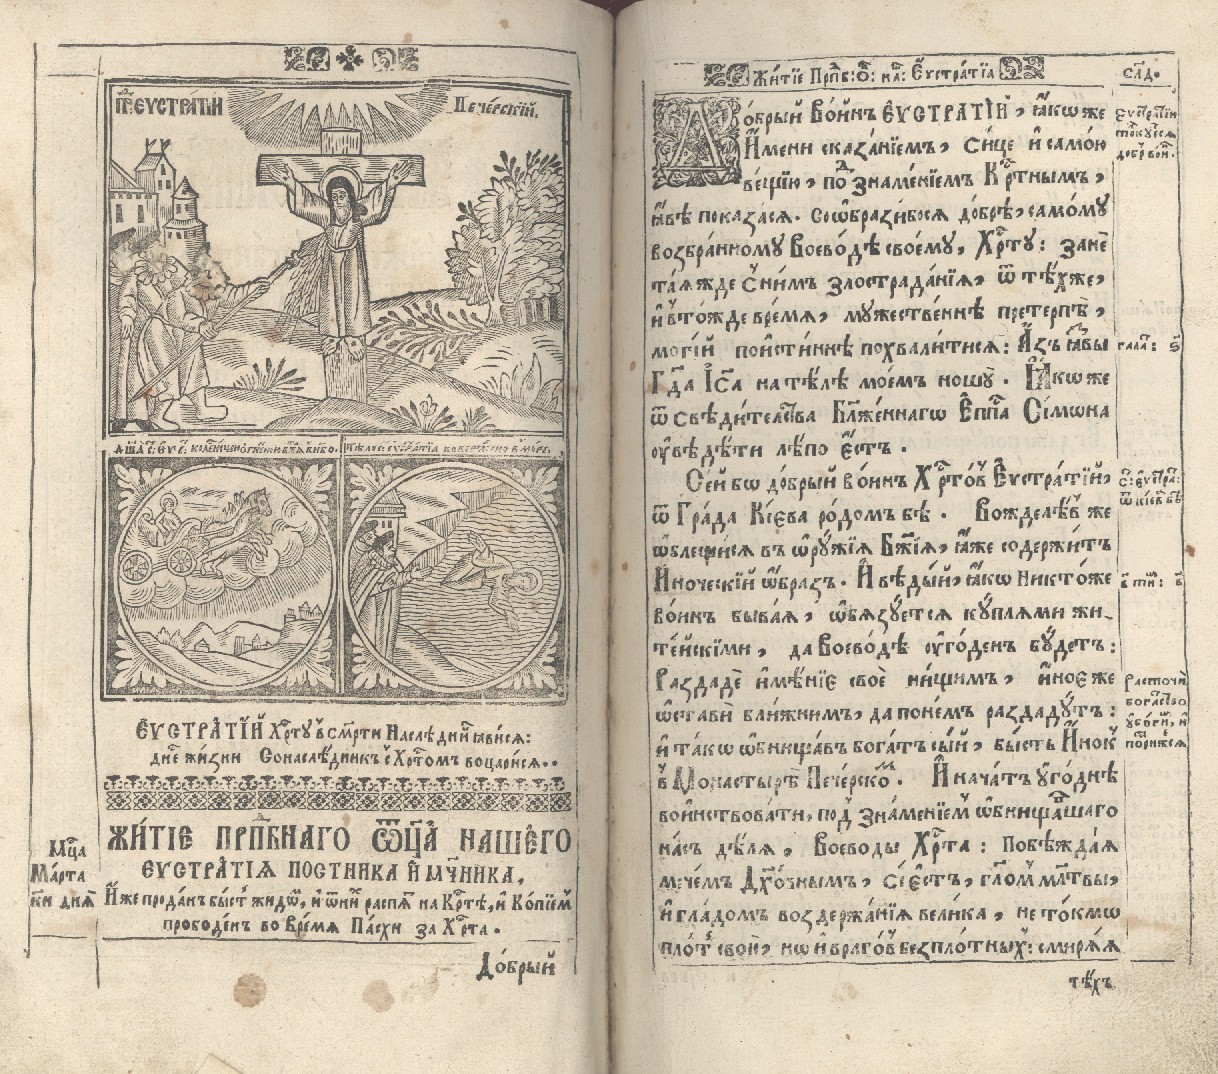 ПР: ЕУСТРА́ТІЙ ПЕЧЕ́РСКІЙ.
ЕУСТРА́ТІЙ Хр҃ту́ в̾ сме́рти Наслѣ́дникъ ꙗ҆ви́сѧ:
дне́ жи́зни Сонаслѣ́дникъ с̾ Хр҃то́мъ воцари́сѧ..
ЖИ́ТІЕ ПРП҃БНАГО Ѿц҃А̀ НАШЕ́ГО
ЕУСТРА́ТІѦ ПОСТНИКА И҆ МЧ҃НИКА,
И҆́же про́данъ бы́сть жидѡ́мъ, и҆ ѿ ни́хъ распѧ́тъ на Кр҃тѣ̀, и҆ Ко́пїемъ
прободе́нъ во Вре́мѧ Па́схи за Хр҃та̀.
Мц҃а
Ма́рта
к҃и днѧ̀
До́брый
Жи́тїе Прп҃б: Ѻ҃: на҃: Еѵстра́тїа
сл҃д.
До́брый Во́инъ ЕѴСТРА́ТІЙ, ꙗ҆́коже
И҆́мени сказа́нїемъ, Си́це и҆ само́ю
ве́щїю, под̾ зна́менїемъ Кр҃тнымъ,
ꙗ҆́вѣ показа́сѧ. Соѡ҆брази́босѧ до́брѣ, само́му
возбра́нному Воево́дѣ своему̀, Хр҃ту̀: занѐ
та́ѧжде с̾ ни́мъ злострада́нїѧ, ѿ тѣ́хже,
и҆ в̾ то́жде вре́мѧ, му́жественнѣ претерпѣ̀,
могі́й пои́стиннѣ похвали́тисѧ: А҆́зъ ꙗ҆́звы
Гд҃а І҆и҃са на тѣ́лѣ мое́мъ ношу̀. Ꙗ҆́коже
ѿ свѣди́телства Бл҃же́ннагѡ Е҆пп҃а Сі́мѡна
ѹ҆вѣ́дѣти лѣ́по є҆́сть.
Се́й бо до́брый во́инъ Хр҃то́въ Еѵстра́тїй,
ѿ Гра́да Кі́ева ро́домъ бѣ̀. Вожделѣ́въ же
ѡ҆блещи́сѧ въ ѻ҆рꙋ́жїѧ Бж҃їѧ, ꙗ҆́же содержи́тъ
И҆́ноческїй ѡ҆́бразъ. И҆ вѣ́дый, ꙗ҆́кѡ никто́же
во́инъ быва́ѧ, ѡ҆бѧзꙋ́етсѧ кꙋ́плѧми жи-
те́йскїми, да Воево́дѣ ѹ҆го́денъ бꙋ́детъ:
Раздадѐ и҆мѣ́нїе своѐ ни́щимъ, и҆но́е же
ѡ҆ста́ви бли́жнимъ, да по не́мъ раздадꙋ́тъ:
и҆ та́кѡ ѡ҆бнища́въ бога́тъ сы́й, бы́сть И҆́нокъ
в̾ Монастырѣ̀ Пече́рскомъ. И҆ нача́тъ ѹ҆го́днѣ
во́инствовати, под̾ зна́менїемъ ѡ҆бнища́вшаго
на́съ дѣ́лѧ, Воево́ды Хр҃та̀: Побѣжда́ѧ
мече́мъ Дх҃о́внымъ, си́есть, гл҃омъ мл҃твы,
и҆ гла́домъ воздержа́нїѧ вели́ка, не то́кмѡ
пло́ть свою̀, но и҆ враго́въ безпло́тныхъ: смирѧ́ѧ
тѣ́хъ
Еѵстра́тїй
толкꙋ́есѧ
до́бр: во́ин.
гала́т: ѕ҃
с҃: еѵстра:
ѿ кі́ева бѣ̀
в҃ тим: в҃
Расточѝ
бога́ство
ѹ҆бо́гим, и҆
пострижесѧ